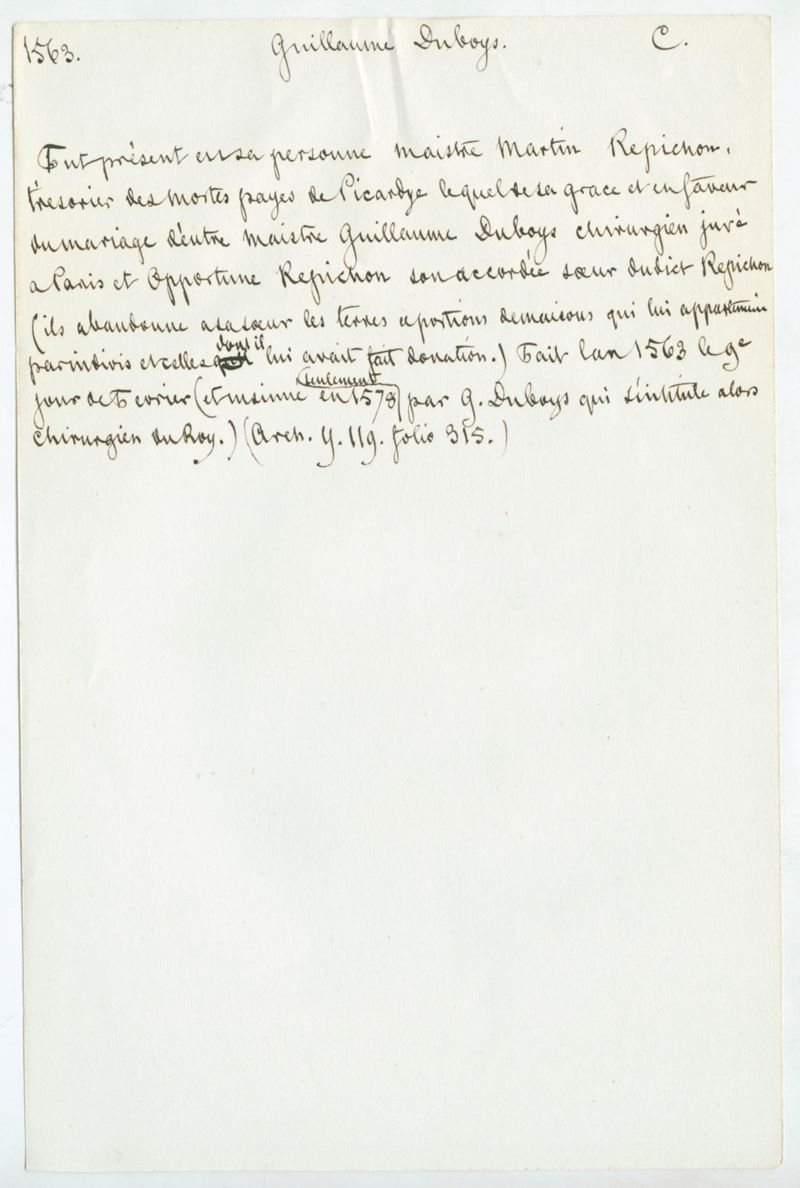 1563. Guillaume Duboys. C.
Fut présent en sa personne maistre Martin Repichon,
trésorier des mortes payes de Picardye lequel de sa grace et en faveur
du mariage d'entre maistre Guillaume Duboys chirurgien juré
a Paris et Opportune Repichon son accordée sœur dudict Repichon
(ils abandonne a sa sœur les terres et portions de maisons qui lui appartenaient
par indivis et celles dont il lui avait fait donation.) Fait lan 1563 le 9e
jour de Fevrier (et insinué seulement en 1578) par G. Duboys qui s'intitule alors
chirurgien du Roy.) (Arch. Y. 119. folio 315.)